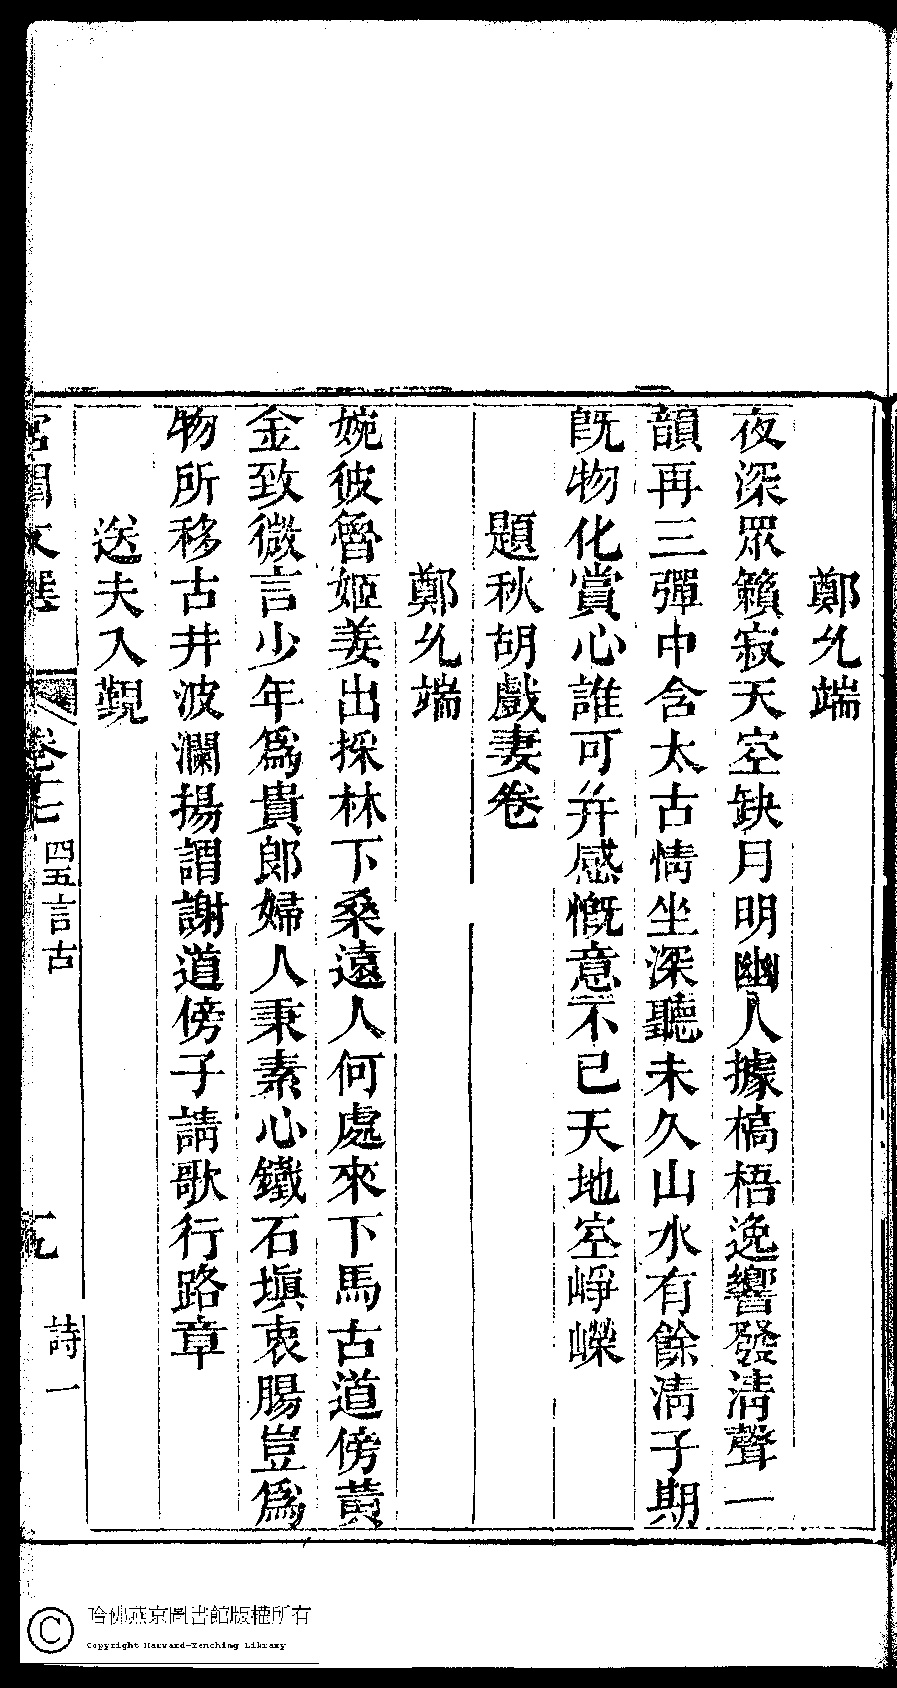 鄭允端
夜深眾籟寂天空缺月明幽人據槁梧逸響發清聲一
韻再三彈中含太古情坐深聽未久山水有餘清子期
旣物化賞心誰可幷感慨意不已天地空崢嶸
題秋胡戲妻卷
鄭允端
婉彼魯姬姜出採林下桑遠人何處來下馬古道傍黃
金致微言少年爲貴郎婦人秉素心鐵石塡衷腸豈爲
物所移古井波瀾揚謂謝道傍子請歌行路章
送夫入覲
宮閨文選
卷十七 四五言古
詩一
哈佛燕京圖書館版權所有
Copyright Harvard-Yenching Library